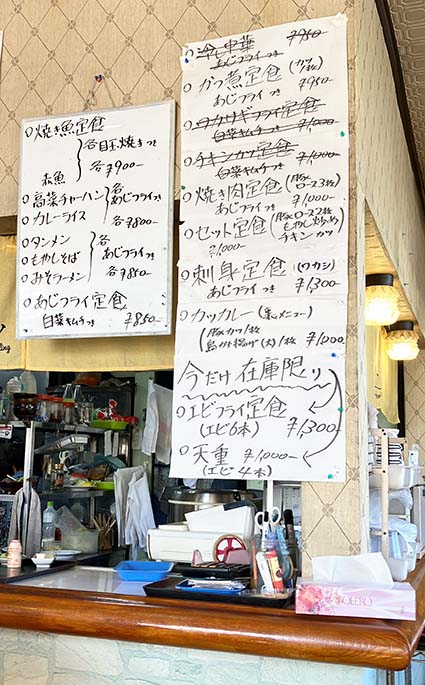 ○焼き魚定食
各目玉焼きつき
赤魚 各¥900-
○高菜チャーハン 各
○カレーライス あじフライつき
各¥800-
○タンメン
○もやしそば 各
○みそラーメン あじフライつき
各¥850-
○あじフライ定食
白菜キムチつき ¥850-
○冷し中華 ¥950-
あじフライつき
○かつ煮定食 (カツ1枚)
あじフライつき ¥950-
○ワカサギフライ定食
白菜キムチつき ¥1,000-
○チキンカツ定食
白菜キムチつき ¥1,000-
○焼き肉定食 (豚ロース3枚)
あじフライつき ¥1,000-
○セット定食 (豚ロース2枚
もやし炒め
チキンカツ
¥1,000-
○刺身定食 (ワカシ)
あじフライつき ¥1,300
○カツカレー (裏メニュー)
1豚カツ1枚
鳥から揚げ(大)1枚 ¥1,000-
今だけ在庫限り
○エビフライ定食
(エビ6本) ¥1,300
○天重 ¥1,000-
(エビ4本)
BOLERO